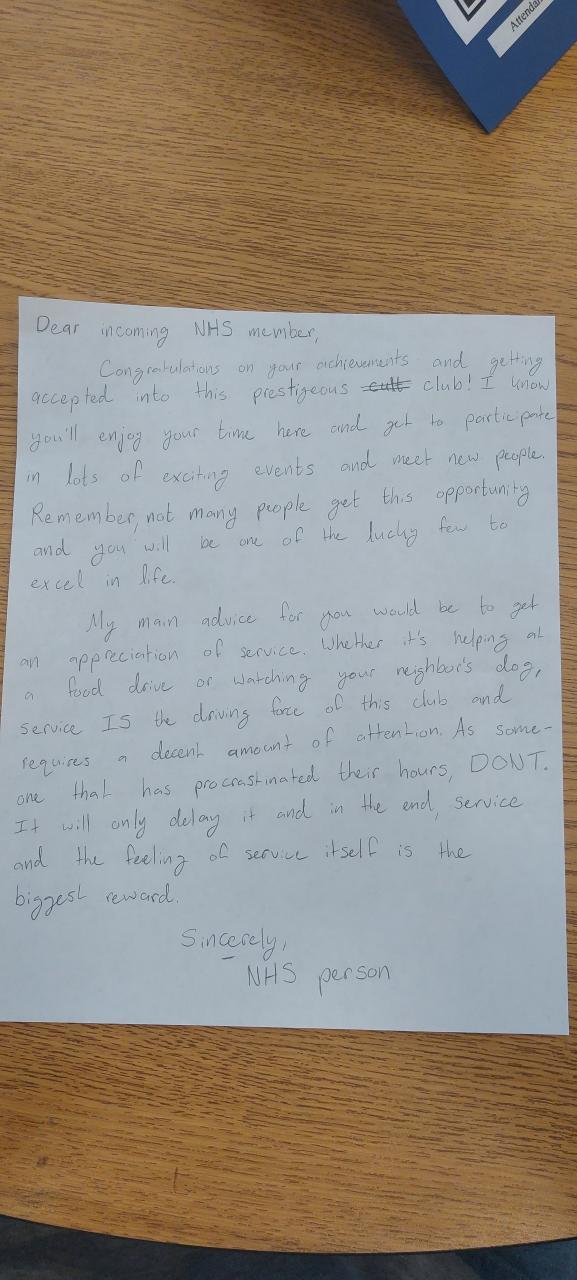 Attendan
Dear incoming NHS member,
Congratulations on your achievements and getting
accepted into this prestigeous cult club! I know
you'll enjoy your time here and get to participate
in lots of exciting events and meet new people.
Remember, not many people get this opportunity
and you will be one of the lucky few to
excel in life.
My main advice for you would be to get
an appreciation of service. Whether it's helping at
a food drive or watching your neighbor's dog,
service IS the driving force of this club and
requires a decent amount of attention. As some-
one that has procrastinated their hours, DONT.
It will only delay it and in the end, service
and the feeling of service itself is the
biggest reward.
Sincerely,
NHS person